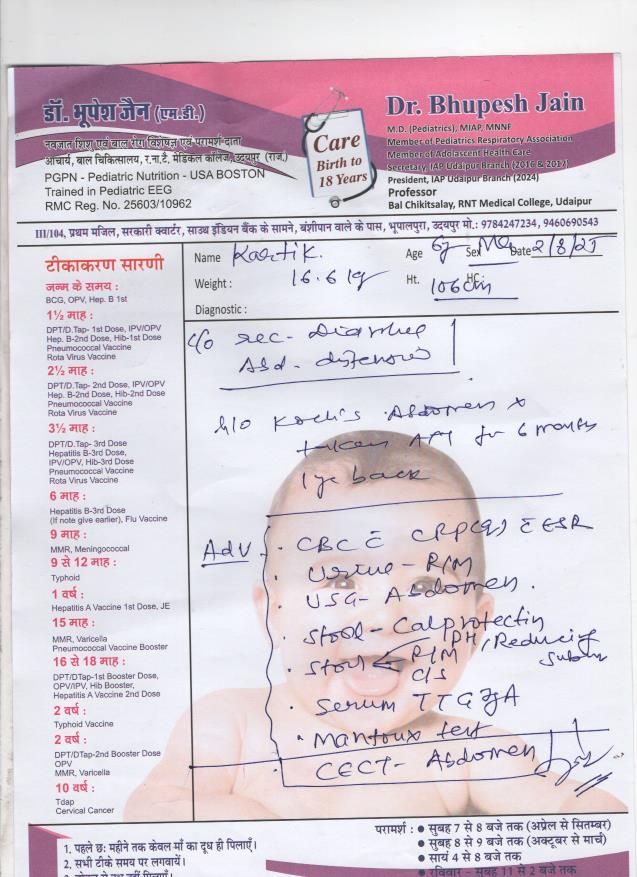 डॉ. भूपेश जैन (एम.डी.)
नवजात शिशु एवं बाल रोग विशेषज्ञ एवं परामर्श-दाता
आचार्य, बाल चिकित्सालय, र.ना.टै. मेडिकल कॉलेज, उदयपुर (राज.)
PGPN - Pediatric Nutrition - USA BOSTON
Trained in Pediatric EEG
RMC Reg. No. 25603/10962
Care
Birth to
18 Years
Dr. Bhupesh Jain
M.D. (Pediatrics), MIAP, MNNF
Member of Pediatrics Respiratory Association
Member of Adolascent Health Care
Secretary, IAP Udaipur Branch (2016 & 2017)
President, IAP Udaipur Branch (2024)
Professor
Bal Chikitsalay, RNT Medical College, Udaipur
III/104, प्रथम मजिल, सरकारी क्वार्टर, साउथ इंडियन बैंक के सामने, बंशीपान वाले के पास, भूपालपुरा, उदयपुर मो.: 9784247234, 9460690543
Name Kartik. Age 6y Sex Date 2/8/25
Weight : 16.6 kg Ht. 106 cm HC:
Diagnostic :
टीकाकरण सारणी
जन्म के समय :
BCG, OPV, Hep. B 1st
1½ माह :
DPT/D.Tap- 1st Dose, IPV/OPV
Hep. B-2nd Dose, Hib-1st Dose
Pneumococcal Vaccine
Rota Virus Vaccine
2½ माह :
DPT/D.Tap- 2nd Dose, IPV/OPV
Hep. B-2nd Dose, Hib-2nd Dose
Pneumococcal Vaccine
Rota Virus Vaccine
3½ माह :
DPT/D.Tap- 3rd Dose
Hepatitis B-3rd Dose,
IPV/OPV, Hib-3rd Dose
Pneumococcal Vaccine
Rota Virus Vaccine
6 माह :
Hepatitis B-3rd Dose
(If note give earlier), Flu Vaccine
9 माह :
MMR, Meningococcal
9 से 12 माह :
Typhoid
1 वर्ष :
Hepatitis A Vaccine 1st Dose, JE
15 माह :
MMR, Varicella
Pneumococcal Vaccine Booster
16 से 18 माह :
DPT/DTap-1st Booster Dose,
OPV/IPV, Hib Booster,
Hepatitis A Vaccine 2nd Dose
2 वर्ष :
Typhoid Vaccine
2 वर्ष :
DPT/DTap-2nd Booster Dose
OPV
MMR, Varicella
10 वर्ष :
Tdap
Cervical Cancer
c/o rec- Diarrhea
Abd- distension
h/o Koch's Abdomen x
taken ATT for 6 months
1 yr back
Adv
. CBC c̄ CRP(q) c̄ ESR
. Urine - R/M
. USG- Abdomen.
. Stool - Calprotectin
. Stool PH/Reducing
R/M
C/S
. Serum TTG IgA
. Mantoux test
. CECT- Abdomen
परामर्श : ● सुबह 7 से 8 बजे तक (अप्रेल से सितम्बर)
● सुबह 8 से 9 बजे तक (अक्टूबर से मार्च)
● सायं 4 से 8 बजे तक
● रविवार - सुबह 11 से 2 बजे तक
1. पहले छः महीने तक केवल माँ का दूध ही पिलाएँ।
2. सभी टीके समय पर लगवायें।